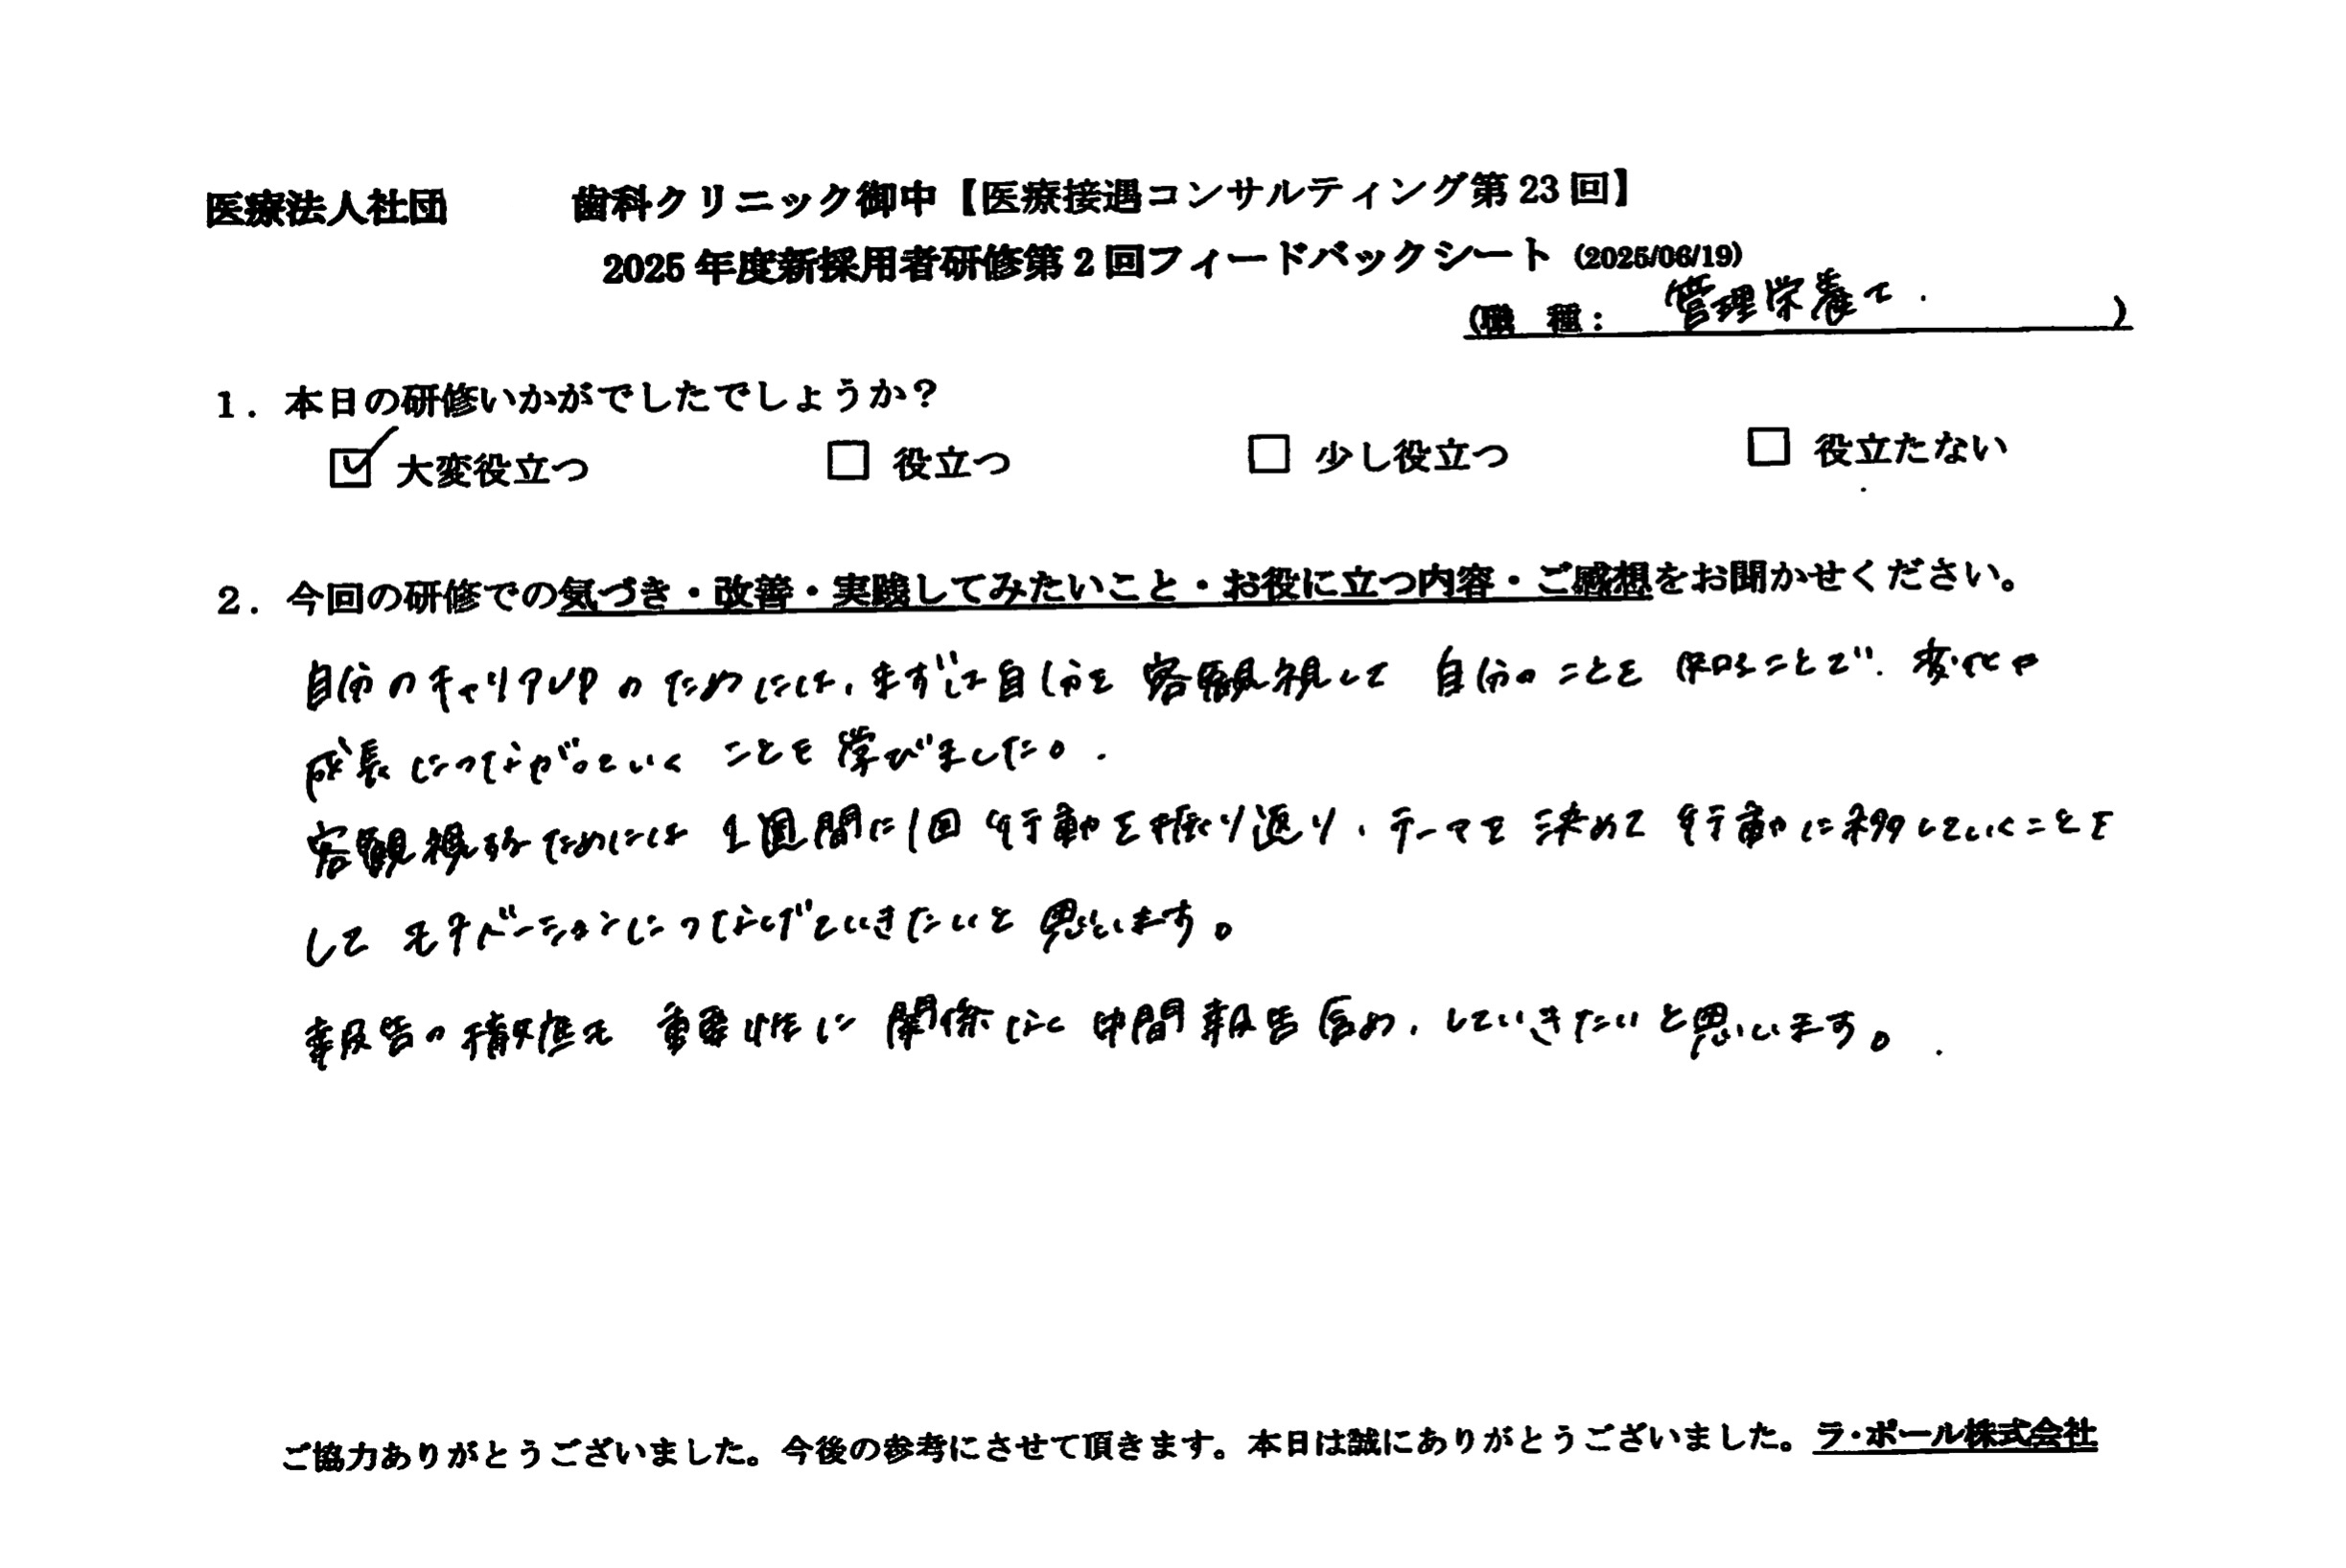 医療法人社団 歯科クリニック御中【医療接遇コンサルティング第23回】
2025年度新採用者研修第2回フィードバックシート (2025/06/19)
(職 種: 管理栄養士 )
1. 本日の研修いかがでしたでしょうか?
☑ 大変役立つ □ 役立つ □ 少し役立つ □ 役立たない
2. 今回の研修での気づき・改善・実践してみたいこと・お役に立つ内容・ご感想をお聞かせください。
自分のキャリアUPのためには、まずは自分を客観視して 自分のことを 知ることで、変化や
成長につながっていく ことを 学びました。
客観視するためには 1週間に1回 行動を振り返り、テーマを 決めて 行動に移していくことを
して モチベーションにつなげていきたいと 思います。
報告の積極性を 重要性に 関係なく 中間報告含め、していきたいと思います。
ご協力ありがとうございました。今後の参考にさせて頂きます。本日は誠にありがとうございました。ラ・ポール株式会社